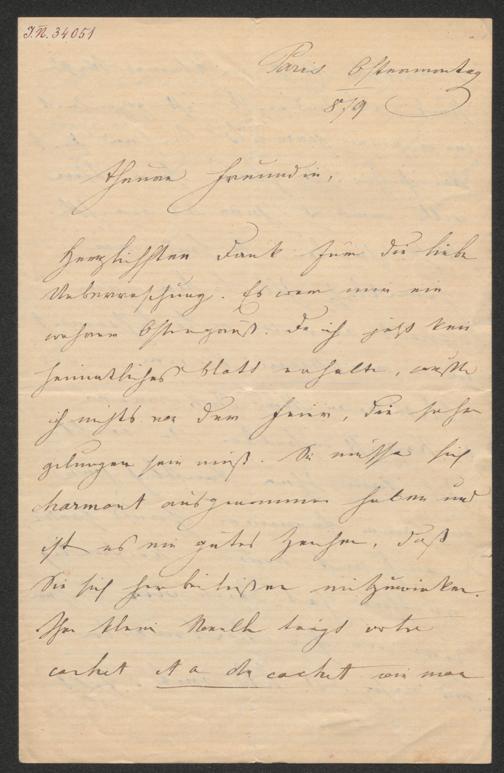 J.N. 34.051
Paris Ostermontag
8/9
theure Freundin,
Herzlichsten Dank für die liebe
Ueberraschung. Es war mir ein
wahrer Ostergruß. Da ich jetzt kein
heimatliches Blatt erhalte, wußte
ich nichts von der Feier, die sehr
gelungen sein muß. Sie müssen sich
charmant ausgenommen haben und
ist es ein gutes Zeichen, daß
Sie sich herbeiließen mitzuwirken.
Ihre kleine Novelle trägt votre
cachet et a du cachet wie man